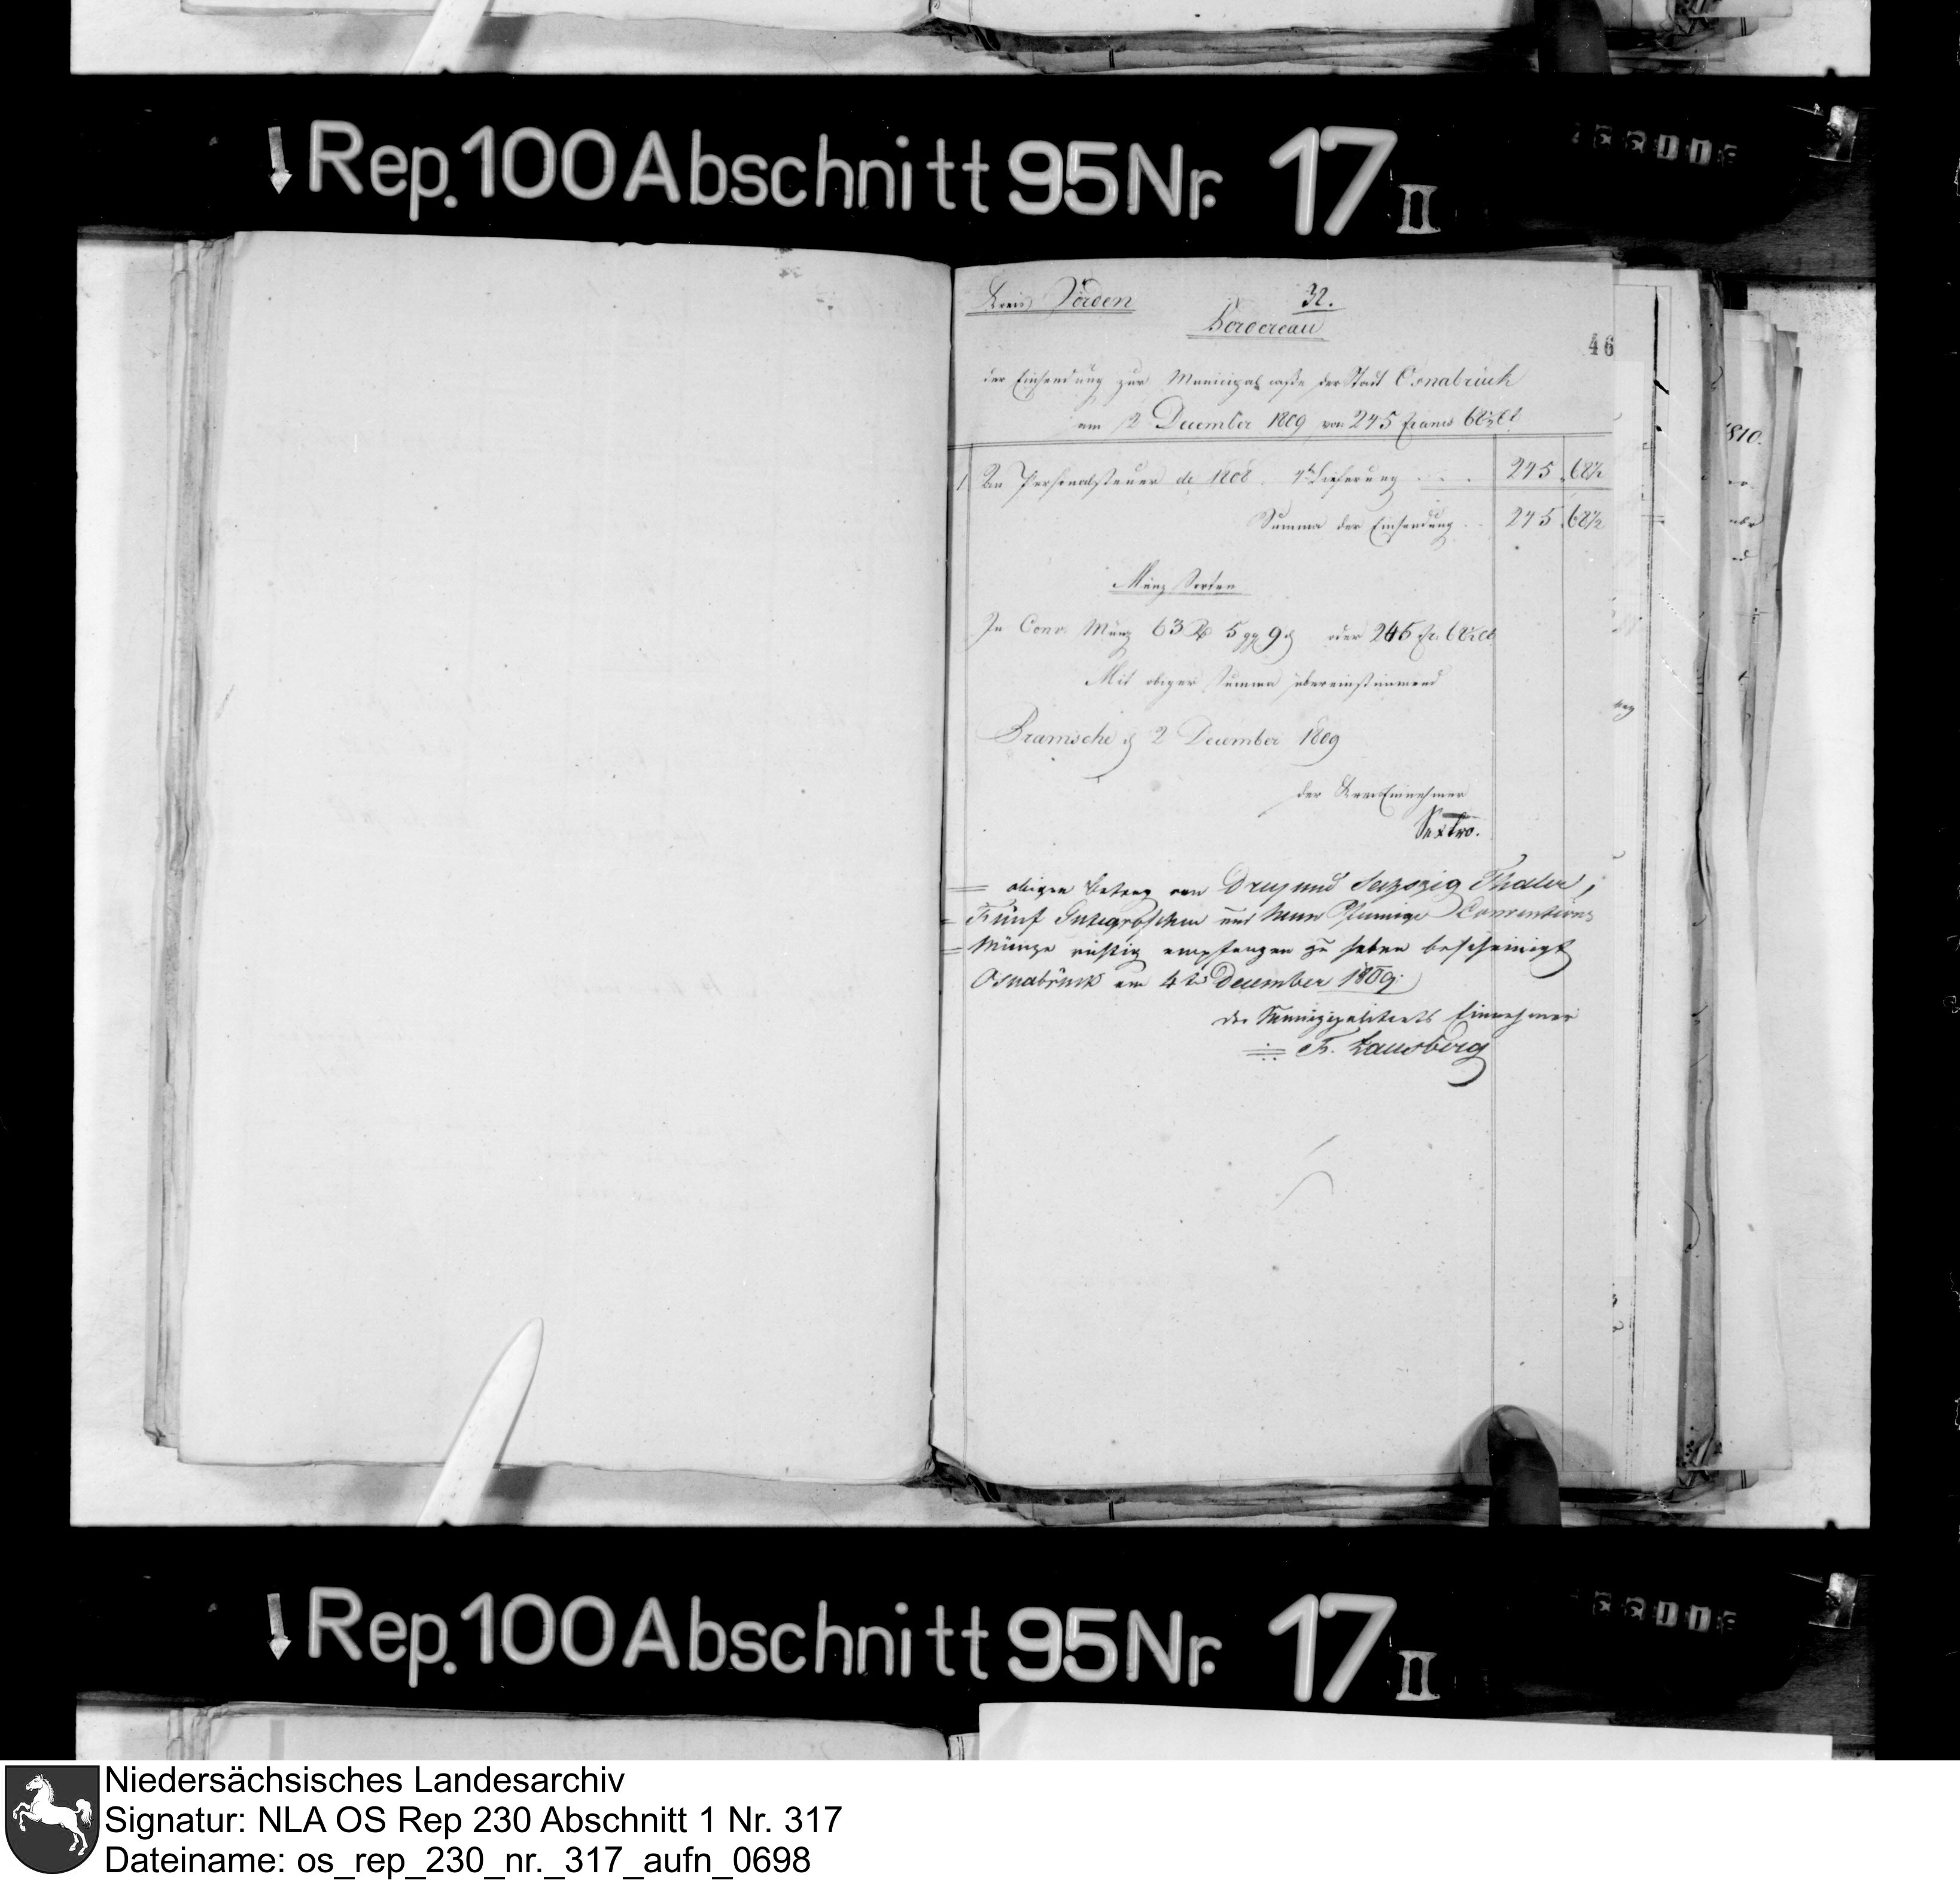 Rep. 100 Abschnitt 95 Nr. 17 II
Kreis Vörden
32.
Bordereau
46
der Einsendung zur Municipalcasse der Stadt Osnabrück
am 2 December 1809 von 245 Francs 68½ Ct
1 An Personalsteuer de 1808. 4te Lieferung . . . 245 68½
Summa der Einsendung . . 245 68½
Münz Sorten
In Conv. Münz 63 Rt 5 ggr 9 d oder 245 fr. 68½ Ct
Mit obiger Summa übereinstimmend
Bramsche d 2 December 1809
der Kreis Einnehmer
Sextro.
obigen Betrag von Drey und Sechzig Thaler,
Fünf Gutegroschen und Neun Pfennige Conventions
Münze richtig empfangen zu haben bescheinigt
Osnabrück am 4ten December 1809.
der Municipalitaets Einnehmer
F. Lausberg
1810.
Rep. 100 Abschnitt 95 Nr. 17 II
Niedersächsisches Landesarchiv
Signatur: NLA OS Rep 230 Abschnitt 1 Nr. 317
Dateiname: os_rep_230_nr._317_aufn_0698